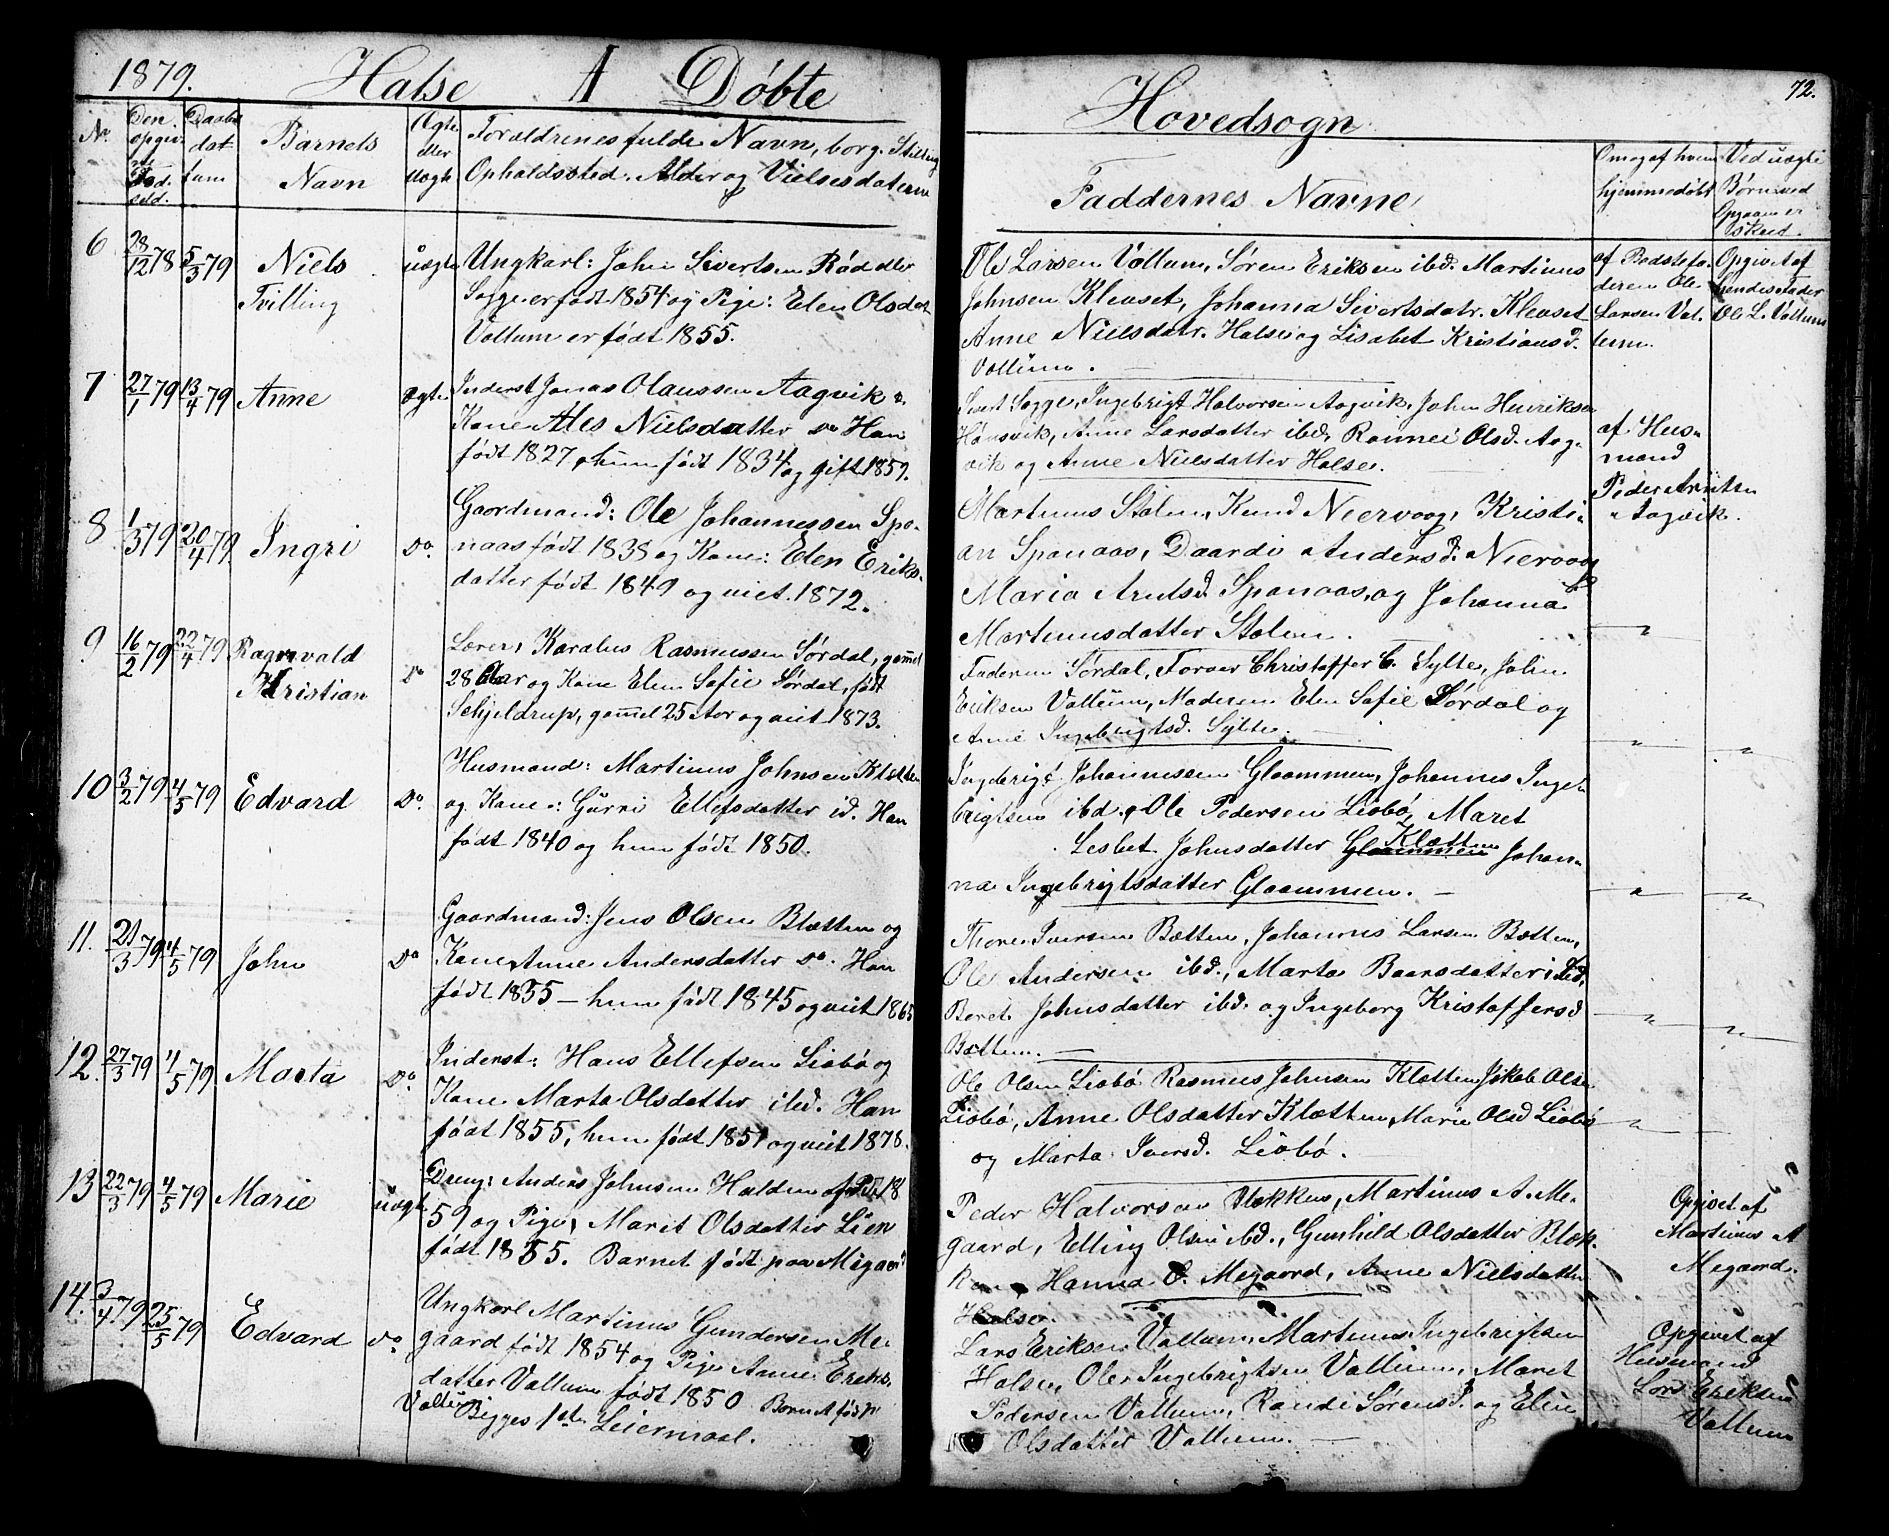 1879. Halse A Døbte
No Den opgivne Fødseld. Daabsdatum Barnets Navn Ægte eller Uægte Forældrenes fulde Navn, borg. Stilling Opholdssted. Alder og Vielsesdatum
6 28/12 78 5/3 79 Niels Tvilling uægte Ungkarl: John Sivertsen Rød eller
Sogge er født 1854 og Pige: Elen Olsdat
Vollum er født 1855.
7 27/1 79 13/4 79 Anne ægte Inderst Jonas Olaussen Aagvik &
Kone Ales Nielsdatter Do Han
født 1827, hun født 1834 og gift 1859.
8 1/3 79 20/4 79. Ingri Do. Gaardmand: Ole Johannessen Spo-
naas født 1838 og Kone: Elen Eriks-
datter født 1849 og viet 1872.
9 16/2 79 22/4 79 Ragnvald Kristian Do Lærer, Karalus Rasmussen Sørdal, gaml
28 Aar og Kone Elen Sofie Sørdal, født
Schjeldrup, gamel 25 Aar og viet 1873.
10 3/2 79 4/5 79 Edvard Do. Husmand: Martinus Johnsen Kletten
og Kone: Gurri Ellefsdatter id. Han
født 1840 og hun født 1850.
11. 21/3 79 4/5 79 John Do Gaardmand: Jens Olsen Bætten og
Kone Anne Andersdatter Do. Han
født 1835 — hun født 1845 og viet 1865
12. 27/3 79 4/5 79 Marta Do. Inderst: Hans Ellefsen Liabø og
Kone Marta Olsdatter ibd. Han
født 1855, hun født 1851 og viet 1878.
13 22/3 79 4/5 79 Marie uægte Dreng: Anders Johnsen Halden født 18
59 og Pige, Marit Olsdatter Lien
født 1855. Barnet født paa Migaard
14. 3/4 79 25/5 79 Edvard Do. Ungkarl Martinus Gundersen Me-
gaard født 1854 og Pige Anne Eriks-
datter Vollum født 1850 Barnet født
Vollum Begges 1ste Leiermaal.
72.
Hovedsogn
Faddernes Navne
Om og af hvem hjemmedøbt
Ved uægte Børn ved Opgaven er skeed.
Ole Larsen Vollum, Søren Eriksen ibd. Martinus
Johnsen Klevset, Johanna Sivertsdatr. Klevset
Anne Nielsdatr. Halse og Lisabet Kristiansd.
Vollum.
af Bedstefa-
deren Ole
Larsen Vol-
lum.
Opgivet af
hendes Fader
Ole L. Vollum
Sivert Sogge, Ingebrigt Halvorsen Aagvik, John Henriksen
Hønsvik, Anne Larsdatter ibd, Rannei Olsd. Aag-
vik og Anne Nielsdatter Halse.
af Hus-
mand
Peder Arntsen
Aagvik.
Martinus Stolen, Knud Niervoog, Kristi-
an Spanaas, Daardi Andersd. Niervoog
Maria Arntsd. Spanaas, og Johanna
Martinusdatter Stolen.
Faderen Sørdal, Forver Christoffer C. Sylte, John
Eriksen Vollum, Moderen Elen Sofie Sørdal og
Anne Ingebrigtsd. Sylte.
Ingebrigt Johannessen Glaammen, Johannes Inge-
brigtsen ibd., Ole Pedersen Liabø, Maret
Lesbet Johnsdatter Glaammen Kletten Johan-
na Ingebrigtsdatter Glaammen.
Thore Iversen Bætten, Johannes Larsen Bætten,
Ole Andersen ibd., Marta Baarsdatter ibd,
Beret Johnsdatter ibd. og Ingeborg Kristoffersd
Bætten.
Ole Olsen Liabø Rasmus Johnsen Kletten, Jakob Olsen
Liabø, Anne Olsdatter Kletten, Marie Olsd Liabø
og Marta Iversd. Liabø.
Peder Halvorsen Blekken, Martinus A. Me-
gaard, Elling Olsen ibd., Gunhild Olsdatter Blek-
ken Hanna O. Megaard, Anne Nielsdatter
Halse.
Opgivet af
Martinus A
Megaard.
Lars Eriksen Vollum, Martinus Ingebrigtsen
Halse, Ole Ingebrigtsen Vollum, Maret
Pedersen Vollum, Randi Sørensd. og Elen
Olsdatter Vollum.
Opgivet af
Husmand
Lars Eriksen
Vollum